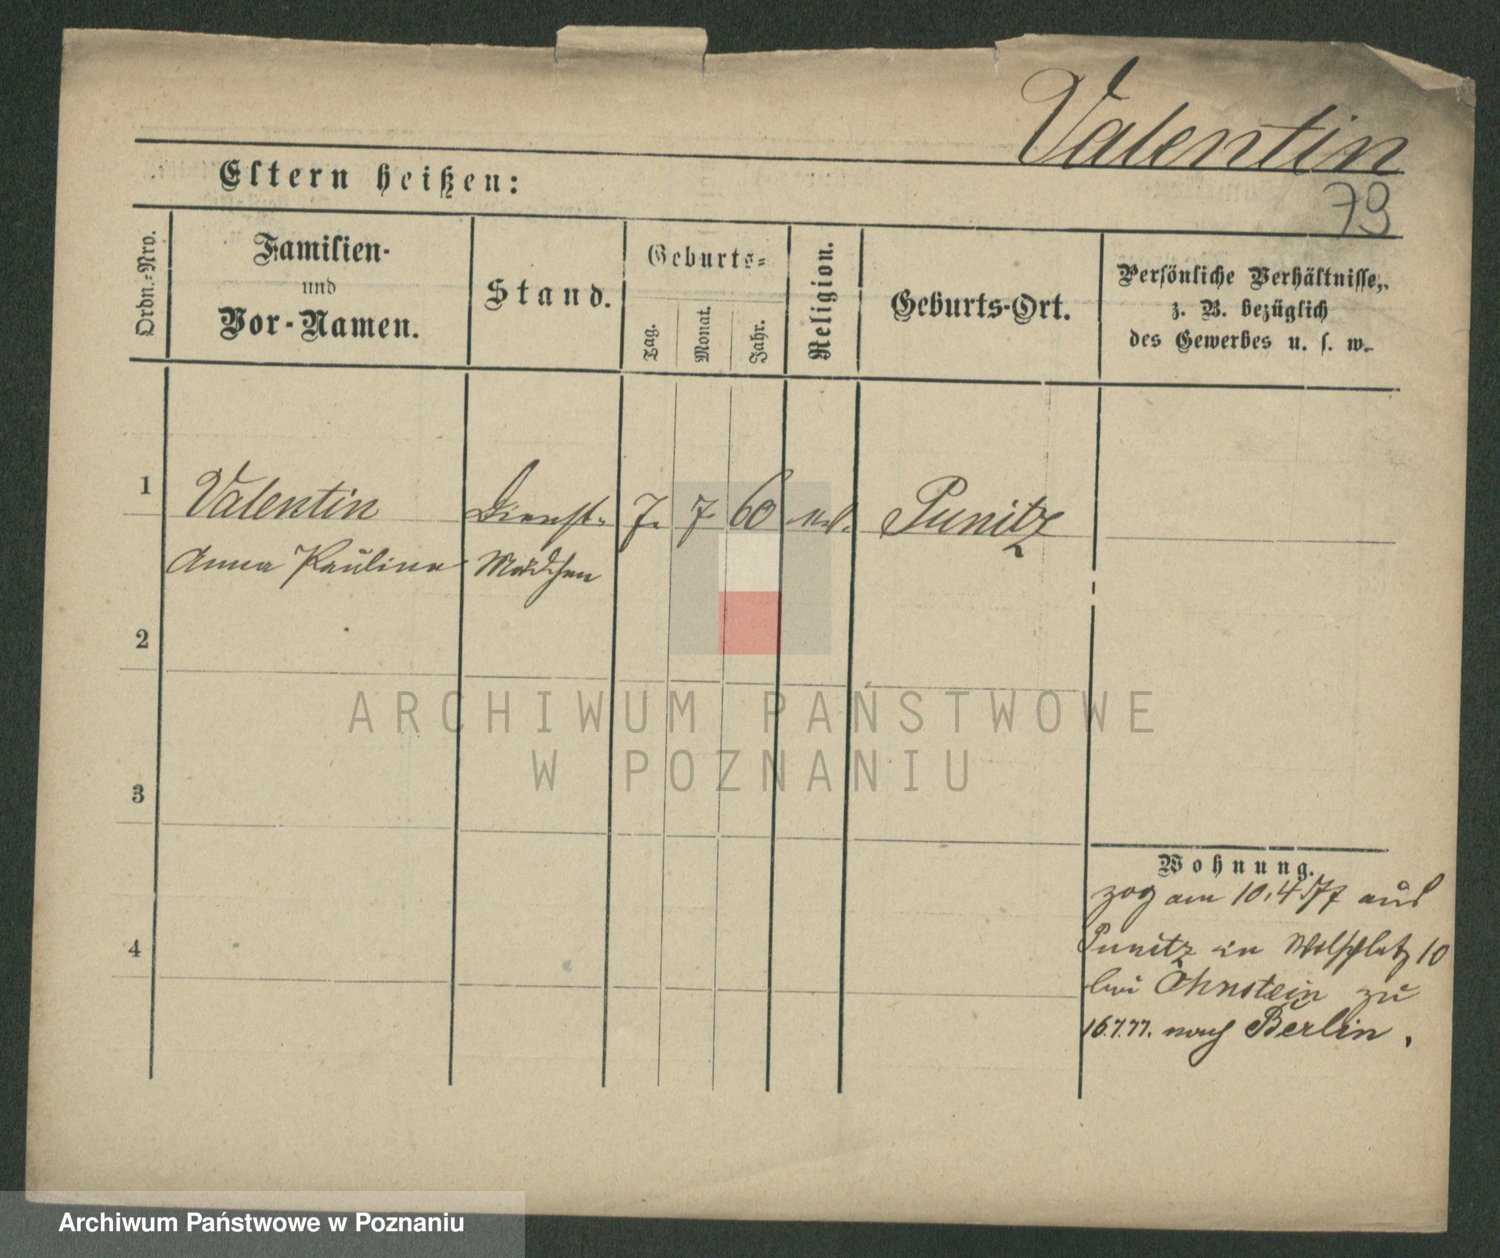 Valentin
79
Eltern heißen:
Ordn.-Nro.
Familien-
und
Vor-Namen.
Stand.
Geburts-
Tag.
Monat.
Jahr.
Religion.
Geburts-Ort.
Persönliche Verhältnisse,
z. B. bezüglich
des Gewerbes u. s. w.
1 Valentin Dienst- 7. 7 60 Punitz
Anna Pauline Mädchen
2
3
4
ARCHIWUM PAŃSTWOWE
W POZNANIU
Wohnung.
zog am 10.4.77 aus
Punitz in 10
bei Ohnstein zu
16.7.77. nach Berlin.
Archiwum Państwowe w Poznaniu